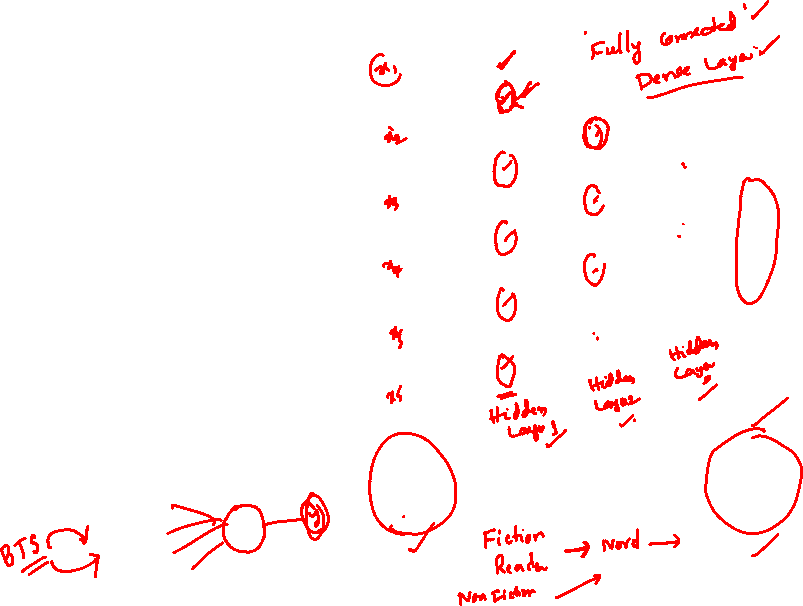 'Fully Connected'
Dense Layer
x1
x2
x3
x4
x5
Hidden
Layer 1
Hidden
Layer 2
Hidden
Layer
BTS
y
Fiction
Reader
Non Fiction